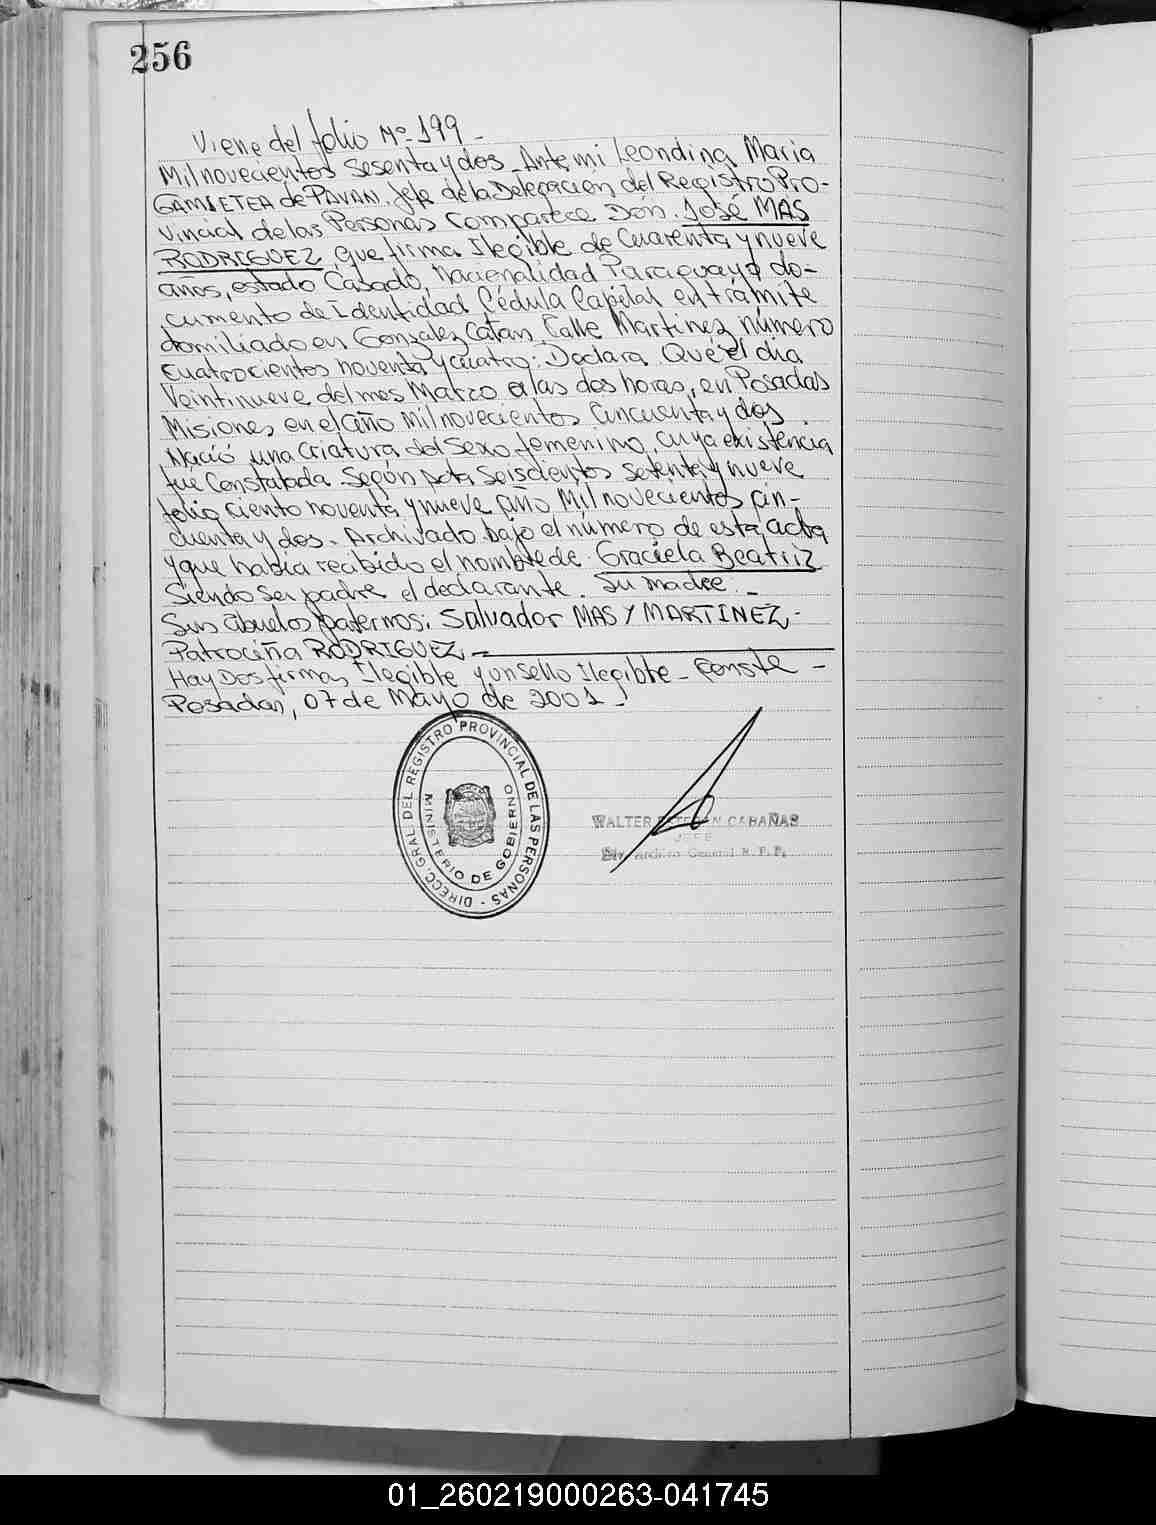 256
Viene del folio Nº 199 -
Mil novecientos Sesenta y dos - Ante mi Leondina Maria
GAMSETEA de PAVAN. Jefe de la Delegación del Registro Pro-
vincial de las Personas Comparece Don. José MAS
RODRIGUEZ que firma Ilegible de Cuarenta y nueve
años, estado Casado, nacionalidad Paraguaya do-
cumento de Identidad Cédula Capital en trámite
domiliado en Gonzalez Catan Calle Martinez número
Cuatrocientos noventa y cuatro: Declara Que el dia
Veintinueve del mes Marzo a las dos horas, en Posadas
Misiones en el año Mil novecientos Cincuenta y dos
Nació una Criatura del Sexo femenino, cuya existencia
fue Constatada Según acta Seiscientos setenta y nueve
folio ciento noventa y nueve año Mil novecientos cin-
cuenta y dos - Archivado bajo el número de esta acta
y que habia recibido el nombre de Graciela Beatriz
Siendo Ser padre el declarante. Su madre: -
Sus abuelos paternos: Salvador MAS Y MARTINEZ -
Patrociña RODRIGUEZ -
Hay Dos firmas Ilegible y un sello Ilegible - Conste -
Posadas, 07 de Mayo de 2001 -
DIRECC. GRAL DEL REGISTRO PROVINCIAL DE LAS PERSONAS -
MINISTERIO DE GOBIERNO
WALTER ESTEBAN CABAÑAS
JEFE
Div. Archivo General R. P. P.
01_260219000263-041745